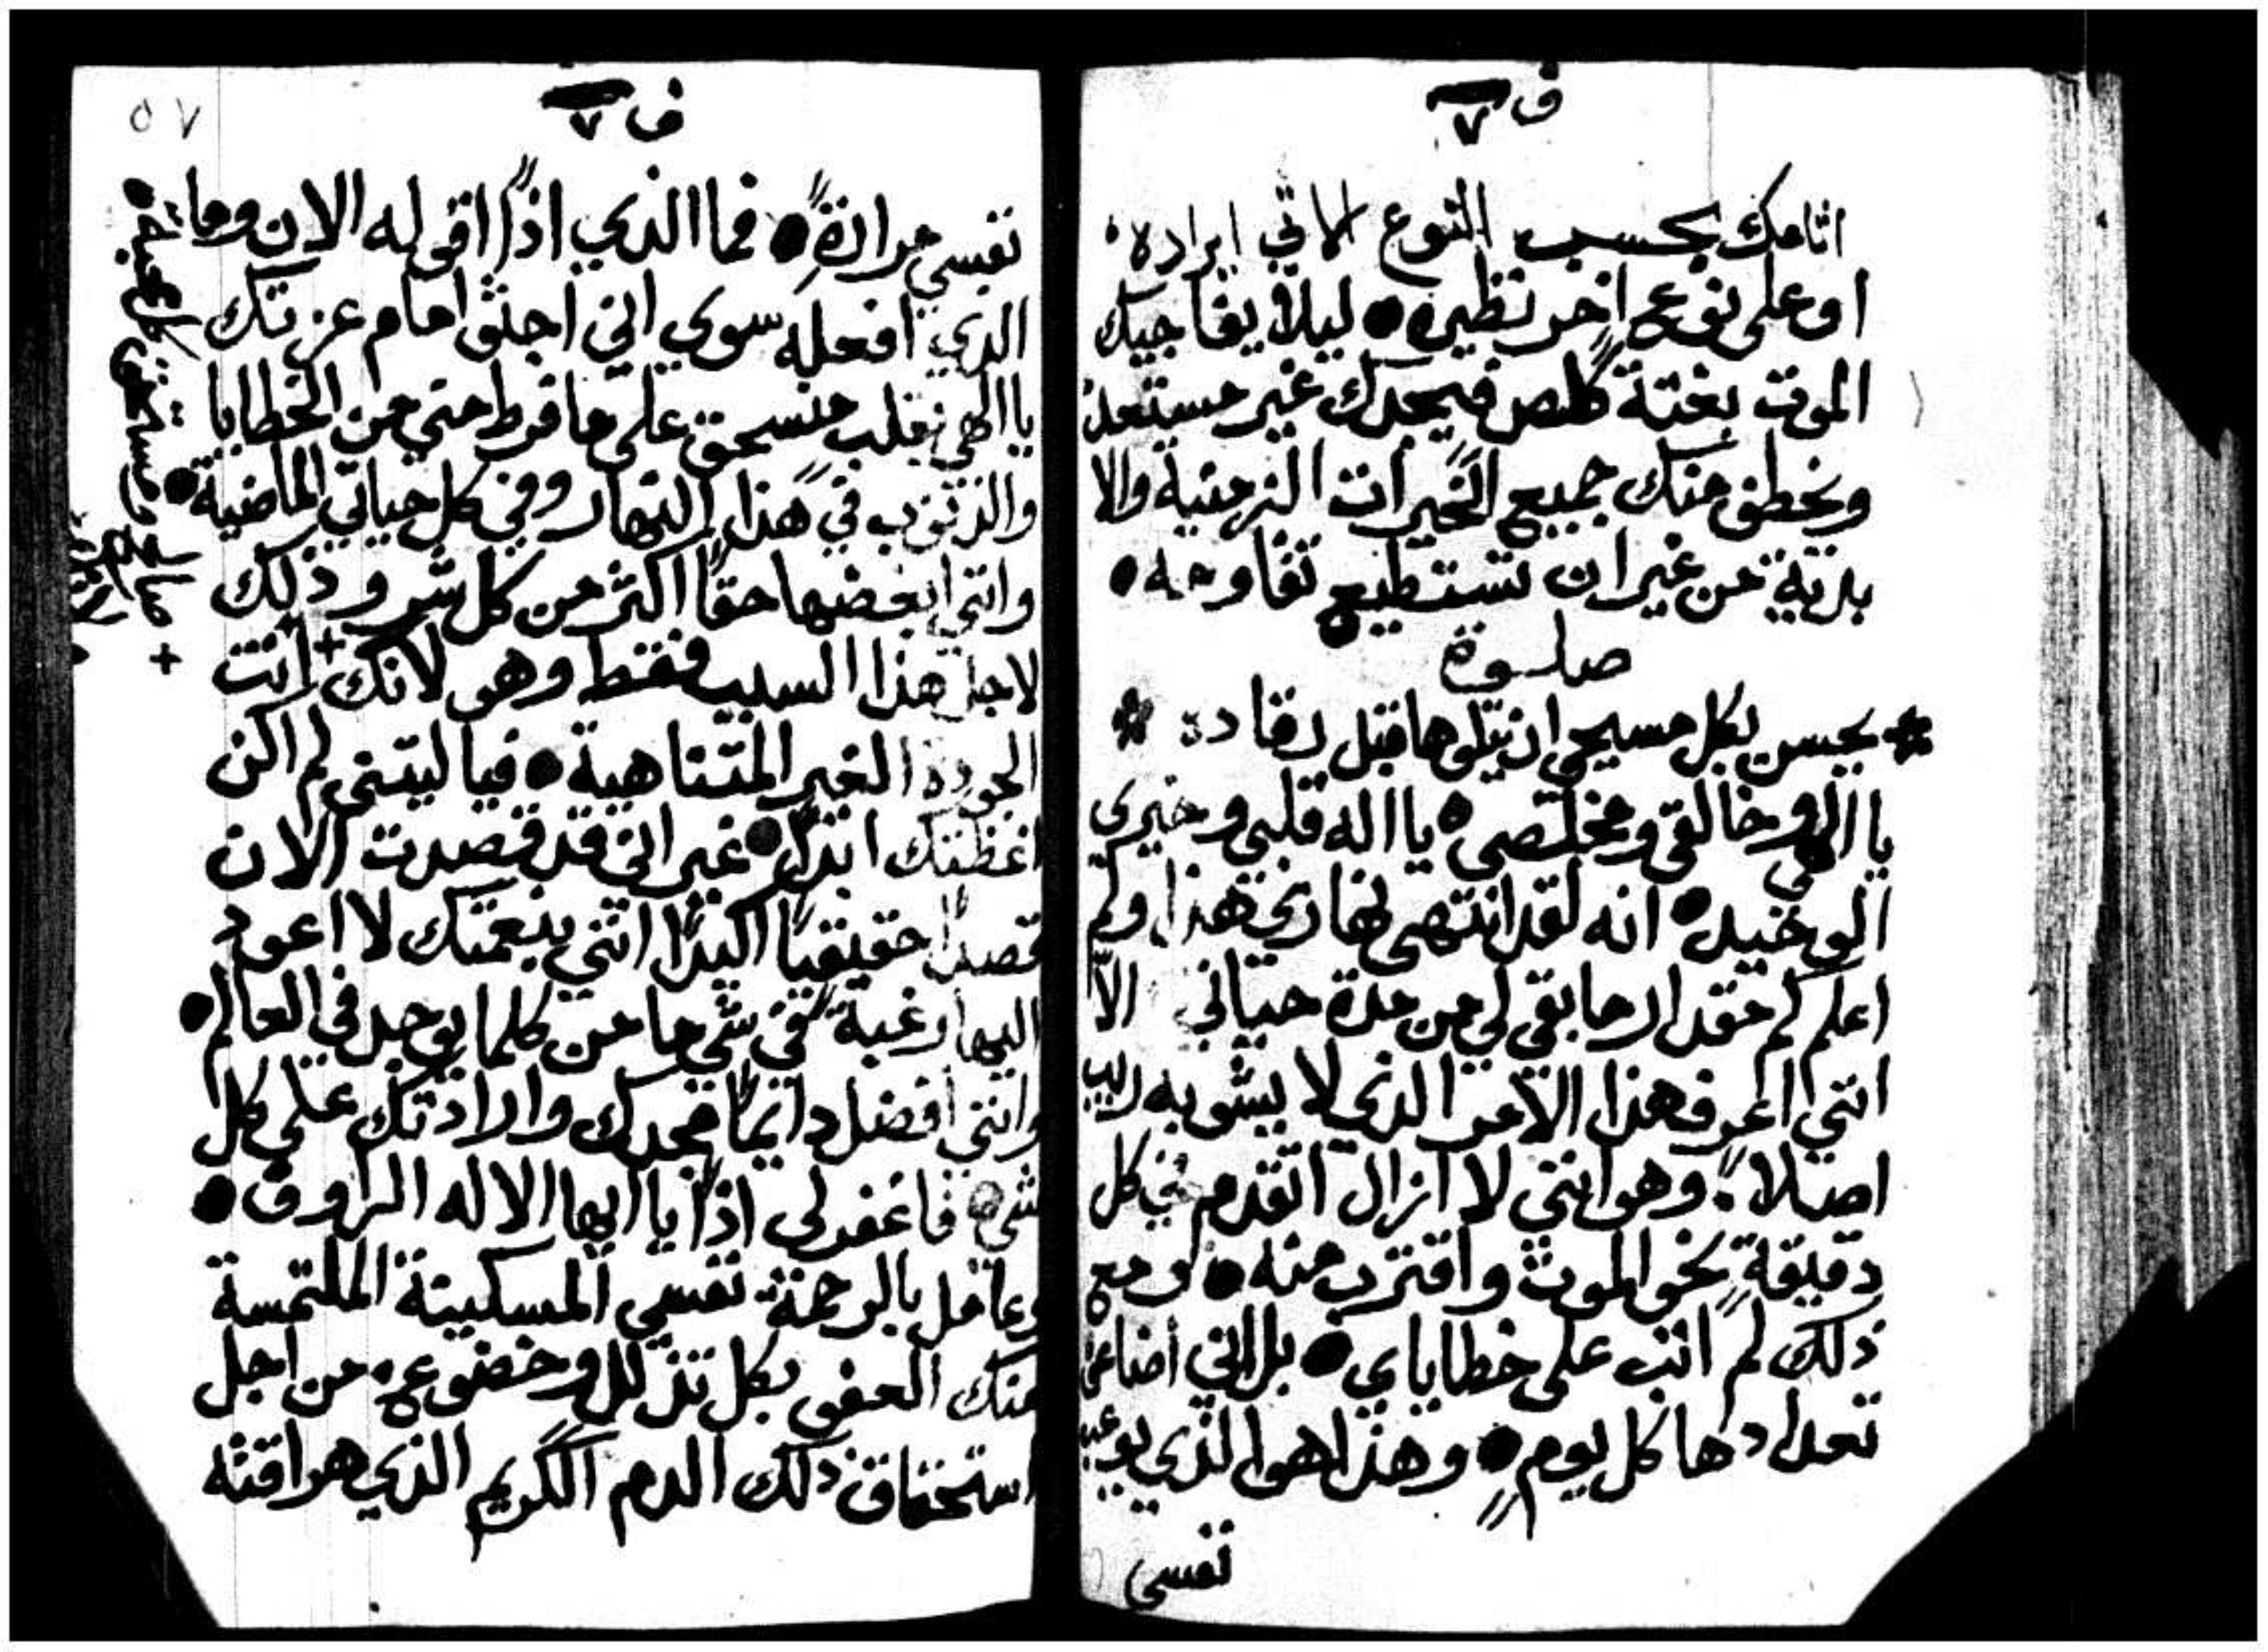 ف ٧
اثامك بحسب النوع الاتي ايراده
او على نوع اخر نظيره ● ليلا يفاجيك
الموت بغتة كلص فيجدك غير مستعد
ويخطف منك جميع الخيرات الزمنية والا
بدية من غير ان تستطيع تقاومه ●
صلوة
* يحسن بكل مسيحي ان يتلوها قبل رقاده *
يا الهي وخالقي ومخلصي ● يا اله قلبي وخيري
الوحيد ● انه لقد انتهى نهاري هذا ولم
اعلم كم مقدار ما بقي لي من مدة حياتي الّا
انني اعرف هذا الامر الذي لا يشوبه ريب
اصلاً . وهو انني لا ازال اتقدم في كل
دقيقة نحو الموت واقترب منه ● ومع
ذلك لم اتب على خطاياي ● بل اني اضاعف
تعدادها كل يوم ● وهذا هو الذي يوعب
نفسي
ف ٧
٥٧
نفسي مرارةً ● فما الذي اذاً اقوله الان وما
الذي افعله سوي اني اجثو امام عزتك
يا الهي بقلب منسحق على ما فرط مني من الخطايا
والذنوب في هذا النهار وفي كل حياتي الماضية ●
وانني ابغضها حقاً اكثر من كل شر وذلك
لاجل هذا السبب فقط وهو لانك + انت
الجودة الغير المتناهية ● فيا ليتني لم اكن
اغظتك ابداً ● غير اني قد قصدت الان
قصداً حقيقياً اكيداً انني بنعمتك لا اعود
اليها رغبة في شي ما من كلما يوجد في العالم ●
وانني افضل دايماً مجدك وارادتك على كل
شي ● فاغفر لي اذاً يا ايها الاله الراوف ●
وعامل بالرحمة نفسي المسكينة الملتمسة
منك العفو بكل تذلل وخضوع ● من اجل
استحقاق ذلك الدم الكريم الذي هراقته
+ صالح ومستحق كل محبة ●